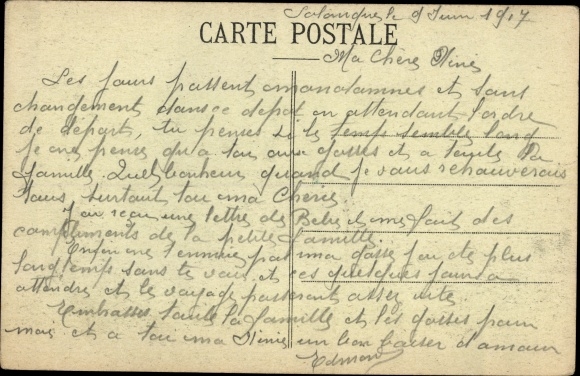 Salanques le 9 Juin 1917
CARTE POSTALE
Ma Chère Ninie
Les jours passent monotones et sans
changement dans ce depot en attendant l'ordre
de départ, tu penses si le temps semble long
je ne pense qu'a toi aux gosses et a toute la
famille. Quel bonheur quand je vous retrouverais
tous, surtout toi ma Cherie.
J'ai reçu une lettre de Bebe et me fait des
compliments de la petite famille.
Enfin ne t'ennuie pas ma gosse de plus
longtemps sans te voir et ces quelques jours a
attendre et le voyage passeront assez vite.
Embrasse toute la famille et les gosses pour
moi et a toi ma Ninie un bon baiser d'amour
Edmond